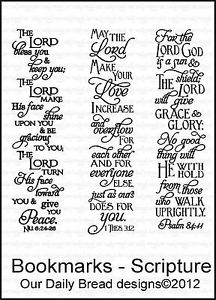 THE
LORD
bless you
&
keep you;
THE
LORD
MAKE
His face
shine
UPON YOU
& BE
gracious
TO you;
THE
LORD
TURN
His face
toward
YOU & give
you
Peace.
NU. 6:24-26
MAY THE
Lord
MAKE
YOUR
Love
INCREASE
and
overflow
FOR
each other
AND FOR
everyone
ELSE,
just as ours
DOES FOR
you.
1 THES. 3:12
FOR the
LORD GOD
is a sun &
shield;
THE
LORD
will give
GRACE &
GLORY;
No good
thing will
HE WITH
HOLD
from those
who WALK
UPRIGHTLY.
Psalm 84:11
Bookmarks - Scripture
Our Daily Bread designs©2012